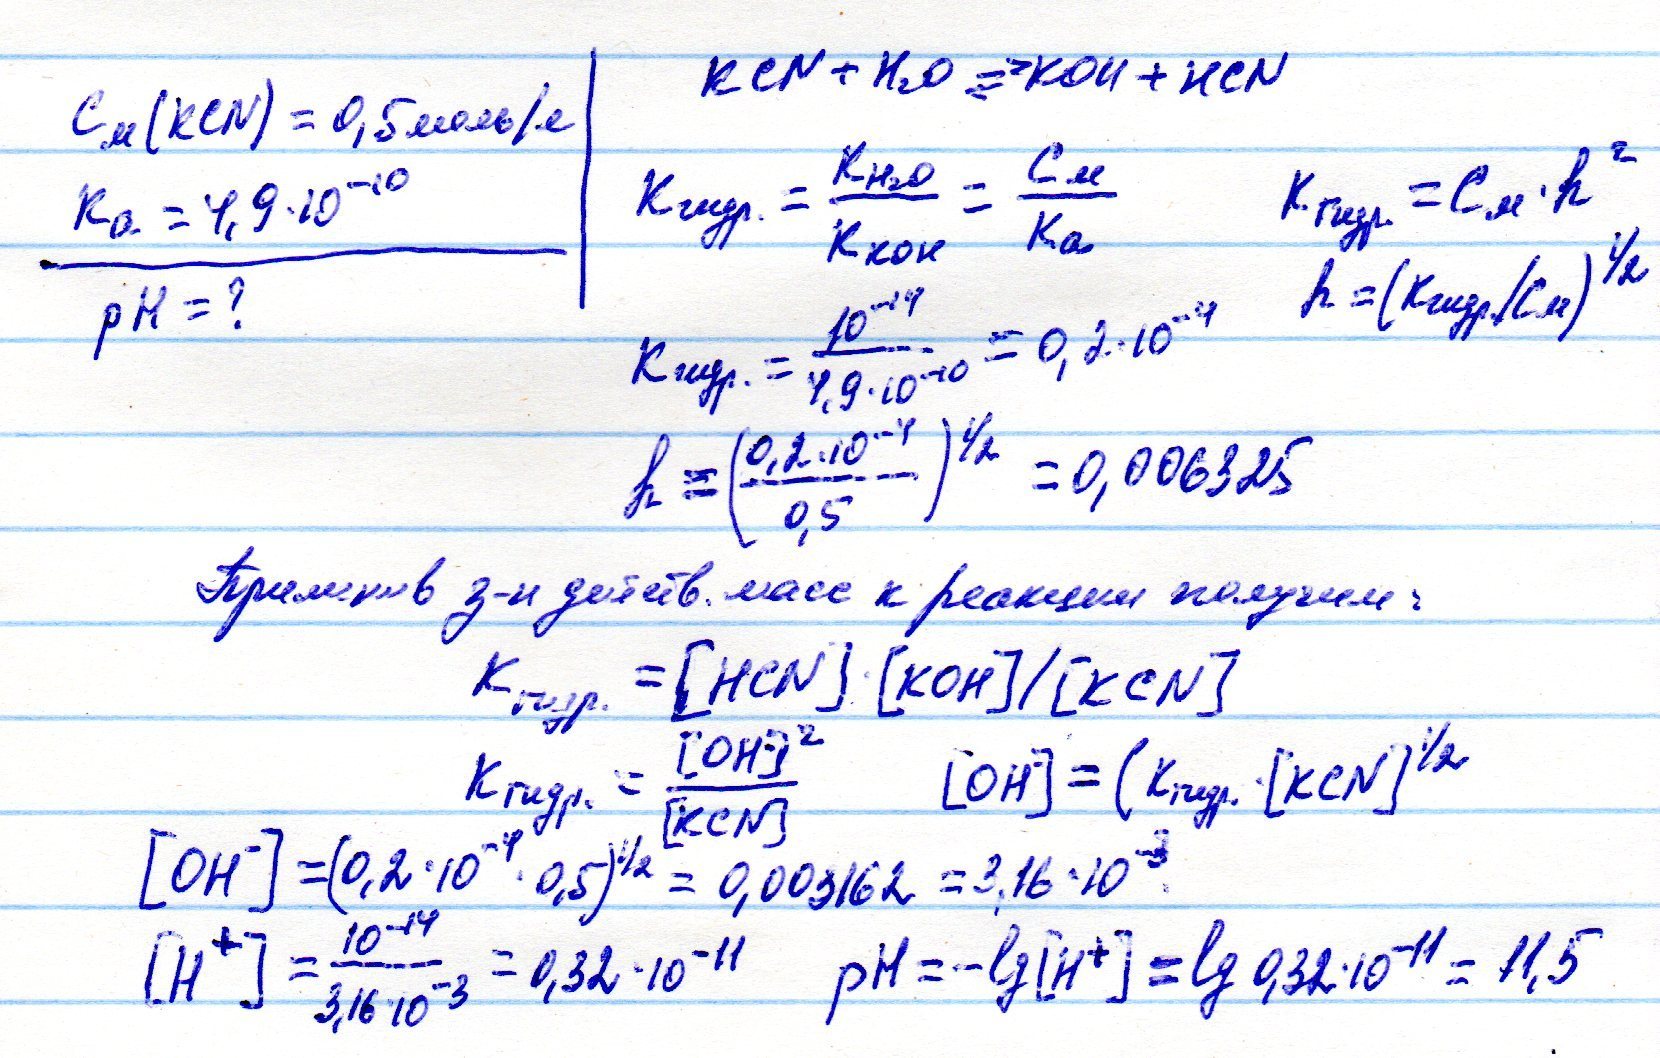 KCN + H₂O ⇄ KOH + HCN
Cм(KCN) = 0,5 моль/л
Kа = 4,9·10⁻¹⁰
pH = ?
Kгидр. = KH₂O / KKOH = Cм / Kа
Kгидр. = Cм·h²
h = (Kгидр./Cм)^1/2
Kгидр. = 10⁻¹⁴ / 4,9·10⁻¹⁰ = 0,2·10⁻⁴
h = (0,2·10⁻⁴ / 0,5)^1/2 = 0,006325
Применив з-н действ. масс к реакции получим:
Kгидр. = [HCN]·[KOH]/[KCN]
Kгидр. = [OH⁻]² / [KCN]
[OH⁻] = (Kгидр.·[KCN]^1/2
[OH⁻] = (0,2·10⁻⁴·0,5)^1/2 = 0,003162 = 3,16·10⁻³
[H⁺] = 10⁻¹⁴ / 3,16·10⁻³ = 0,32·10⁻¹¹
pH = -lg[H⁺] = lg 0,32·10⁻¹¹ = 11,5